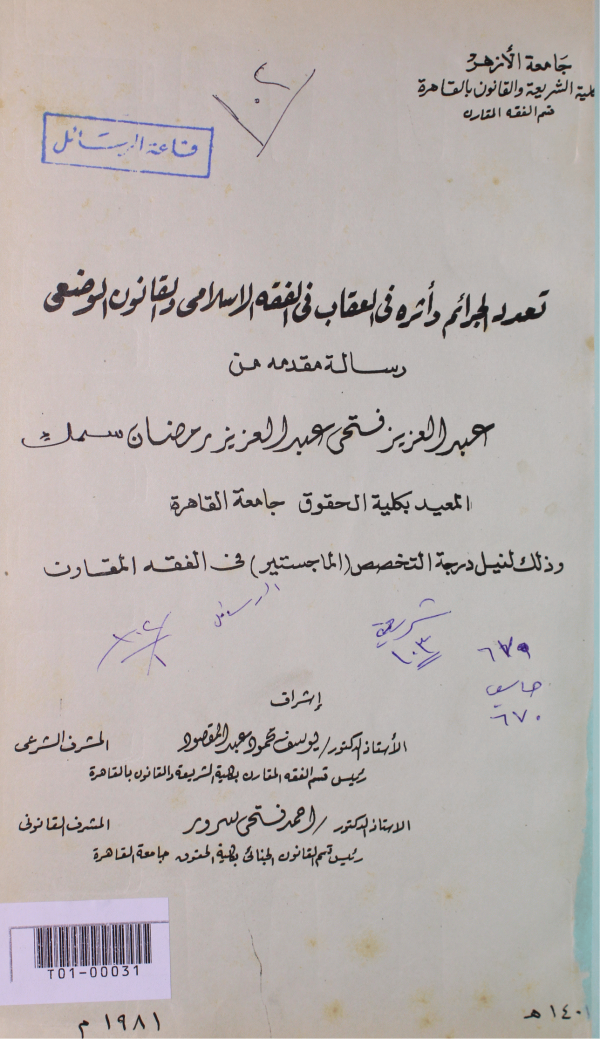 جامعة الأزهر
كلية الشريعة والقانون بالقاهرة
قسم الفقه المقارن
١٠٢
قاعة الرسائل
تعدد الجرائم وأثره في العقاب في الفقه الإسلامي والقانون الوضعي
رسالة مقدمه من
عبد العزيز فتحى عبد العزيز رمضان سمك
المعيد بكلية الحقوق جامعة القاهرة
وذلك لنيل درجة التخصص (الماجستير) فى الفقه المقارن
الرسائل
شريعة
١٠٣
٦٧٩
٦٧٠
إشراف
الأستاذ الدكتور / يوسف محمود عبد المقصود المشرف الشرعى
رئيس قسم الفقه المقارن بكلية الشريعة والقانون بالقاهرة
الاستاذ الدكتور / احمد فتحى سرور المشرف القانونى
رئيس قسم القانون الجنائى بكلية الحقوق جامعة القاهرة
T01-00031
١٤٠١ هـ
١٩٨١ م